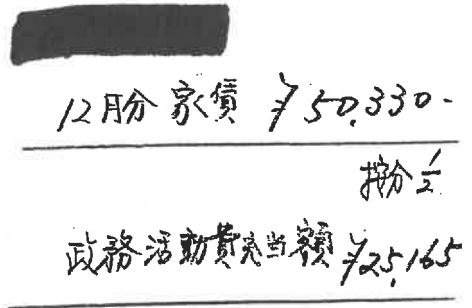 12月分 家賃 ¥50,330-
按分 1/2
政務活動費充当額 ¥25,165